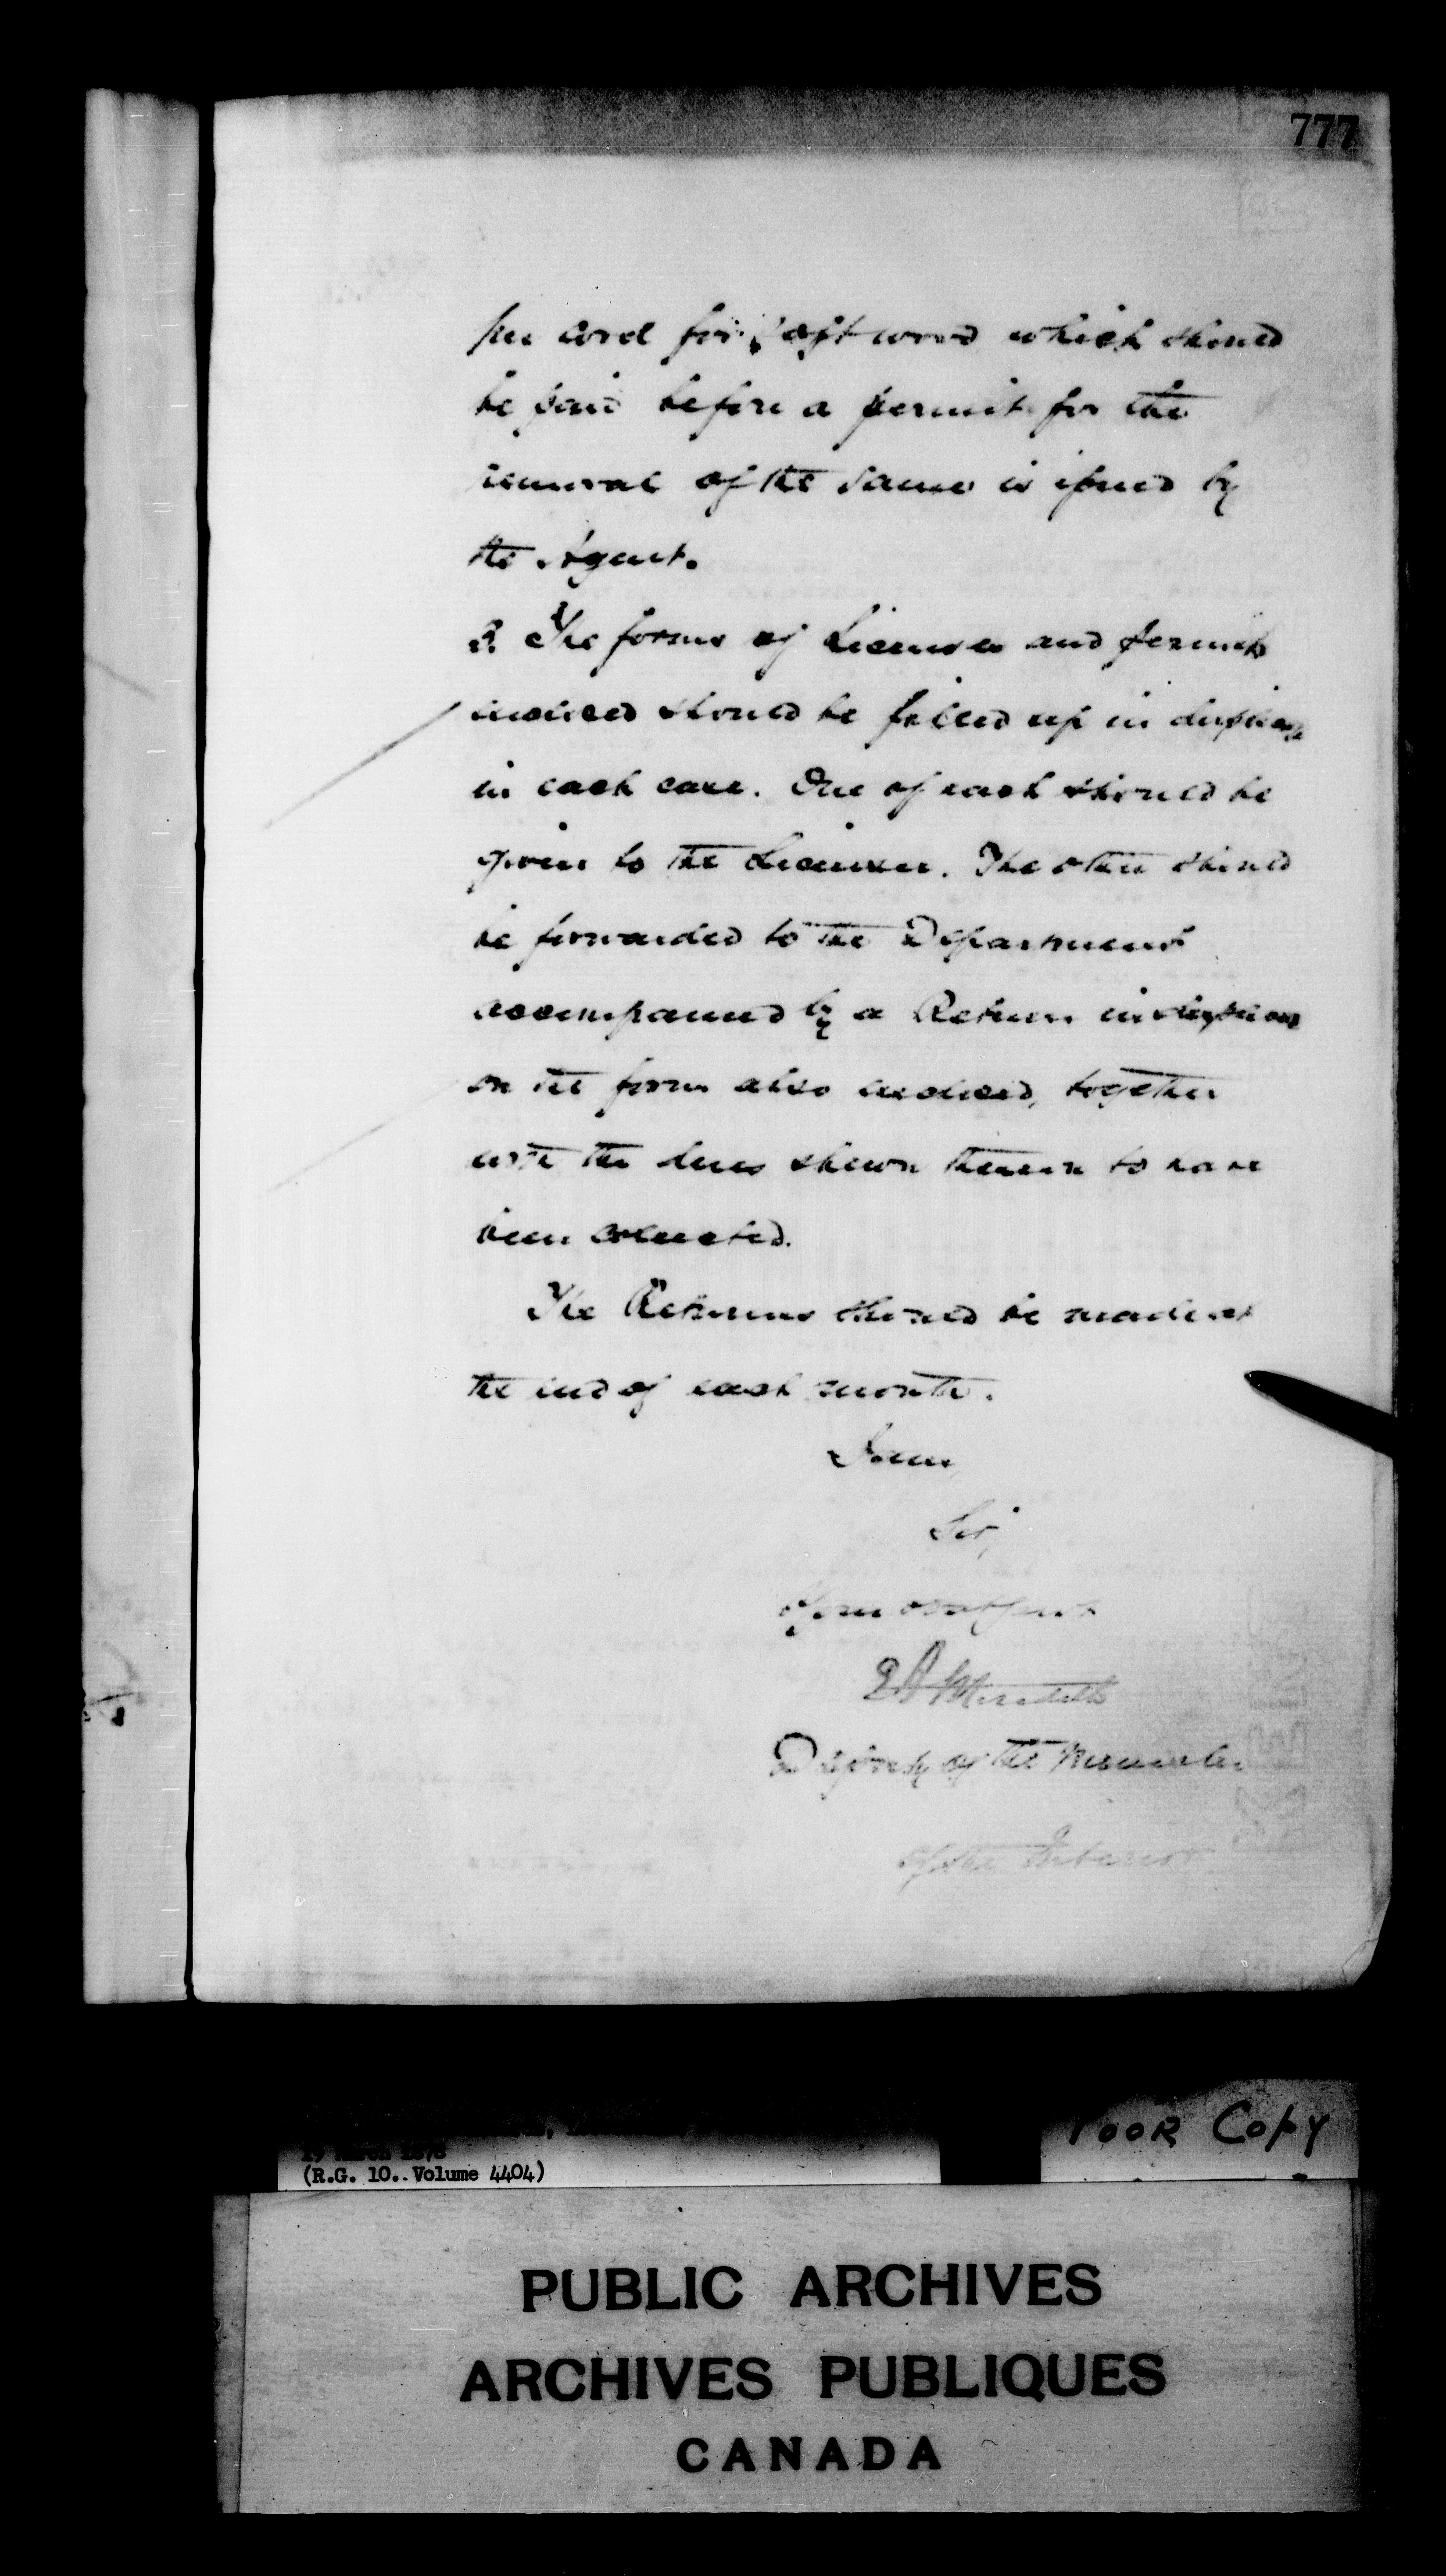 777
per cord for soft wood which should
be paid before a permit for the
removal of the same is issued by
the Agent.
3. The forms of Licenses and permits
inclosed should be filled up in duplicate
in each case. One of each should be
given to the Licensee. The other should
be forwarded to the Department
accompanied by a Return in duplicate
on the form also inclosed, together
with the dues shewn therein to have
been collected.
The Returns should be made at
the end of each month.
I am
Sir,
Your obdt Servt
E A Meredith
Deputy of the Minister
of the Interior
POOR COPY
(R.G. 10.. Volume 4404)
PUBLIC ARCHIVES
ARCHIVES PUBLIQUES
CANADA